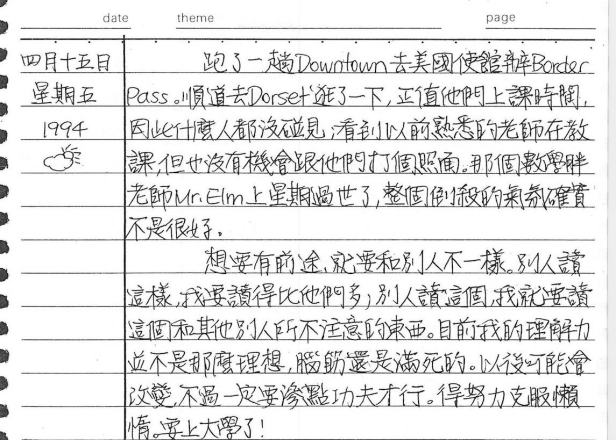 date theme page
四月十五日 跑了一趟Downtown去美國使館辦Border
星期五 Pass。順道去Dorset逛了一下，正值他們上課時間，
1994 因此什麼人都沒碰見；看到以前熟悉的老師在教
課，但也沒有機會跟他們打個照面。那個數學胖
老師Mr. Elm上星期過世了，整個倒殺的氣氛確實
不是很好。
想要有前途，就要和別人不一樣。別人讀
這樣，我要讀得比他們多；別人讀這個，我就要讀
這個和其他別人所不注意的東西。目前我的理解力
並不是那麼理想，腦筋還是滿死的。以後可能會
改變，不過一定要滲點功夫才行。得努力克服懶
惰。要上大學了！